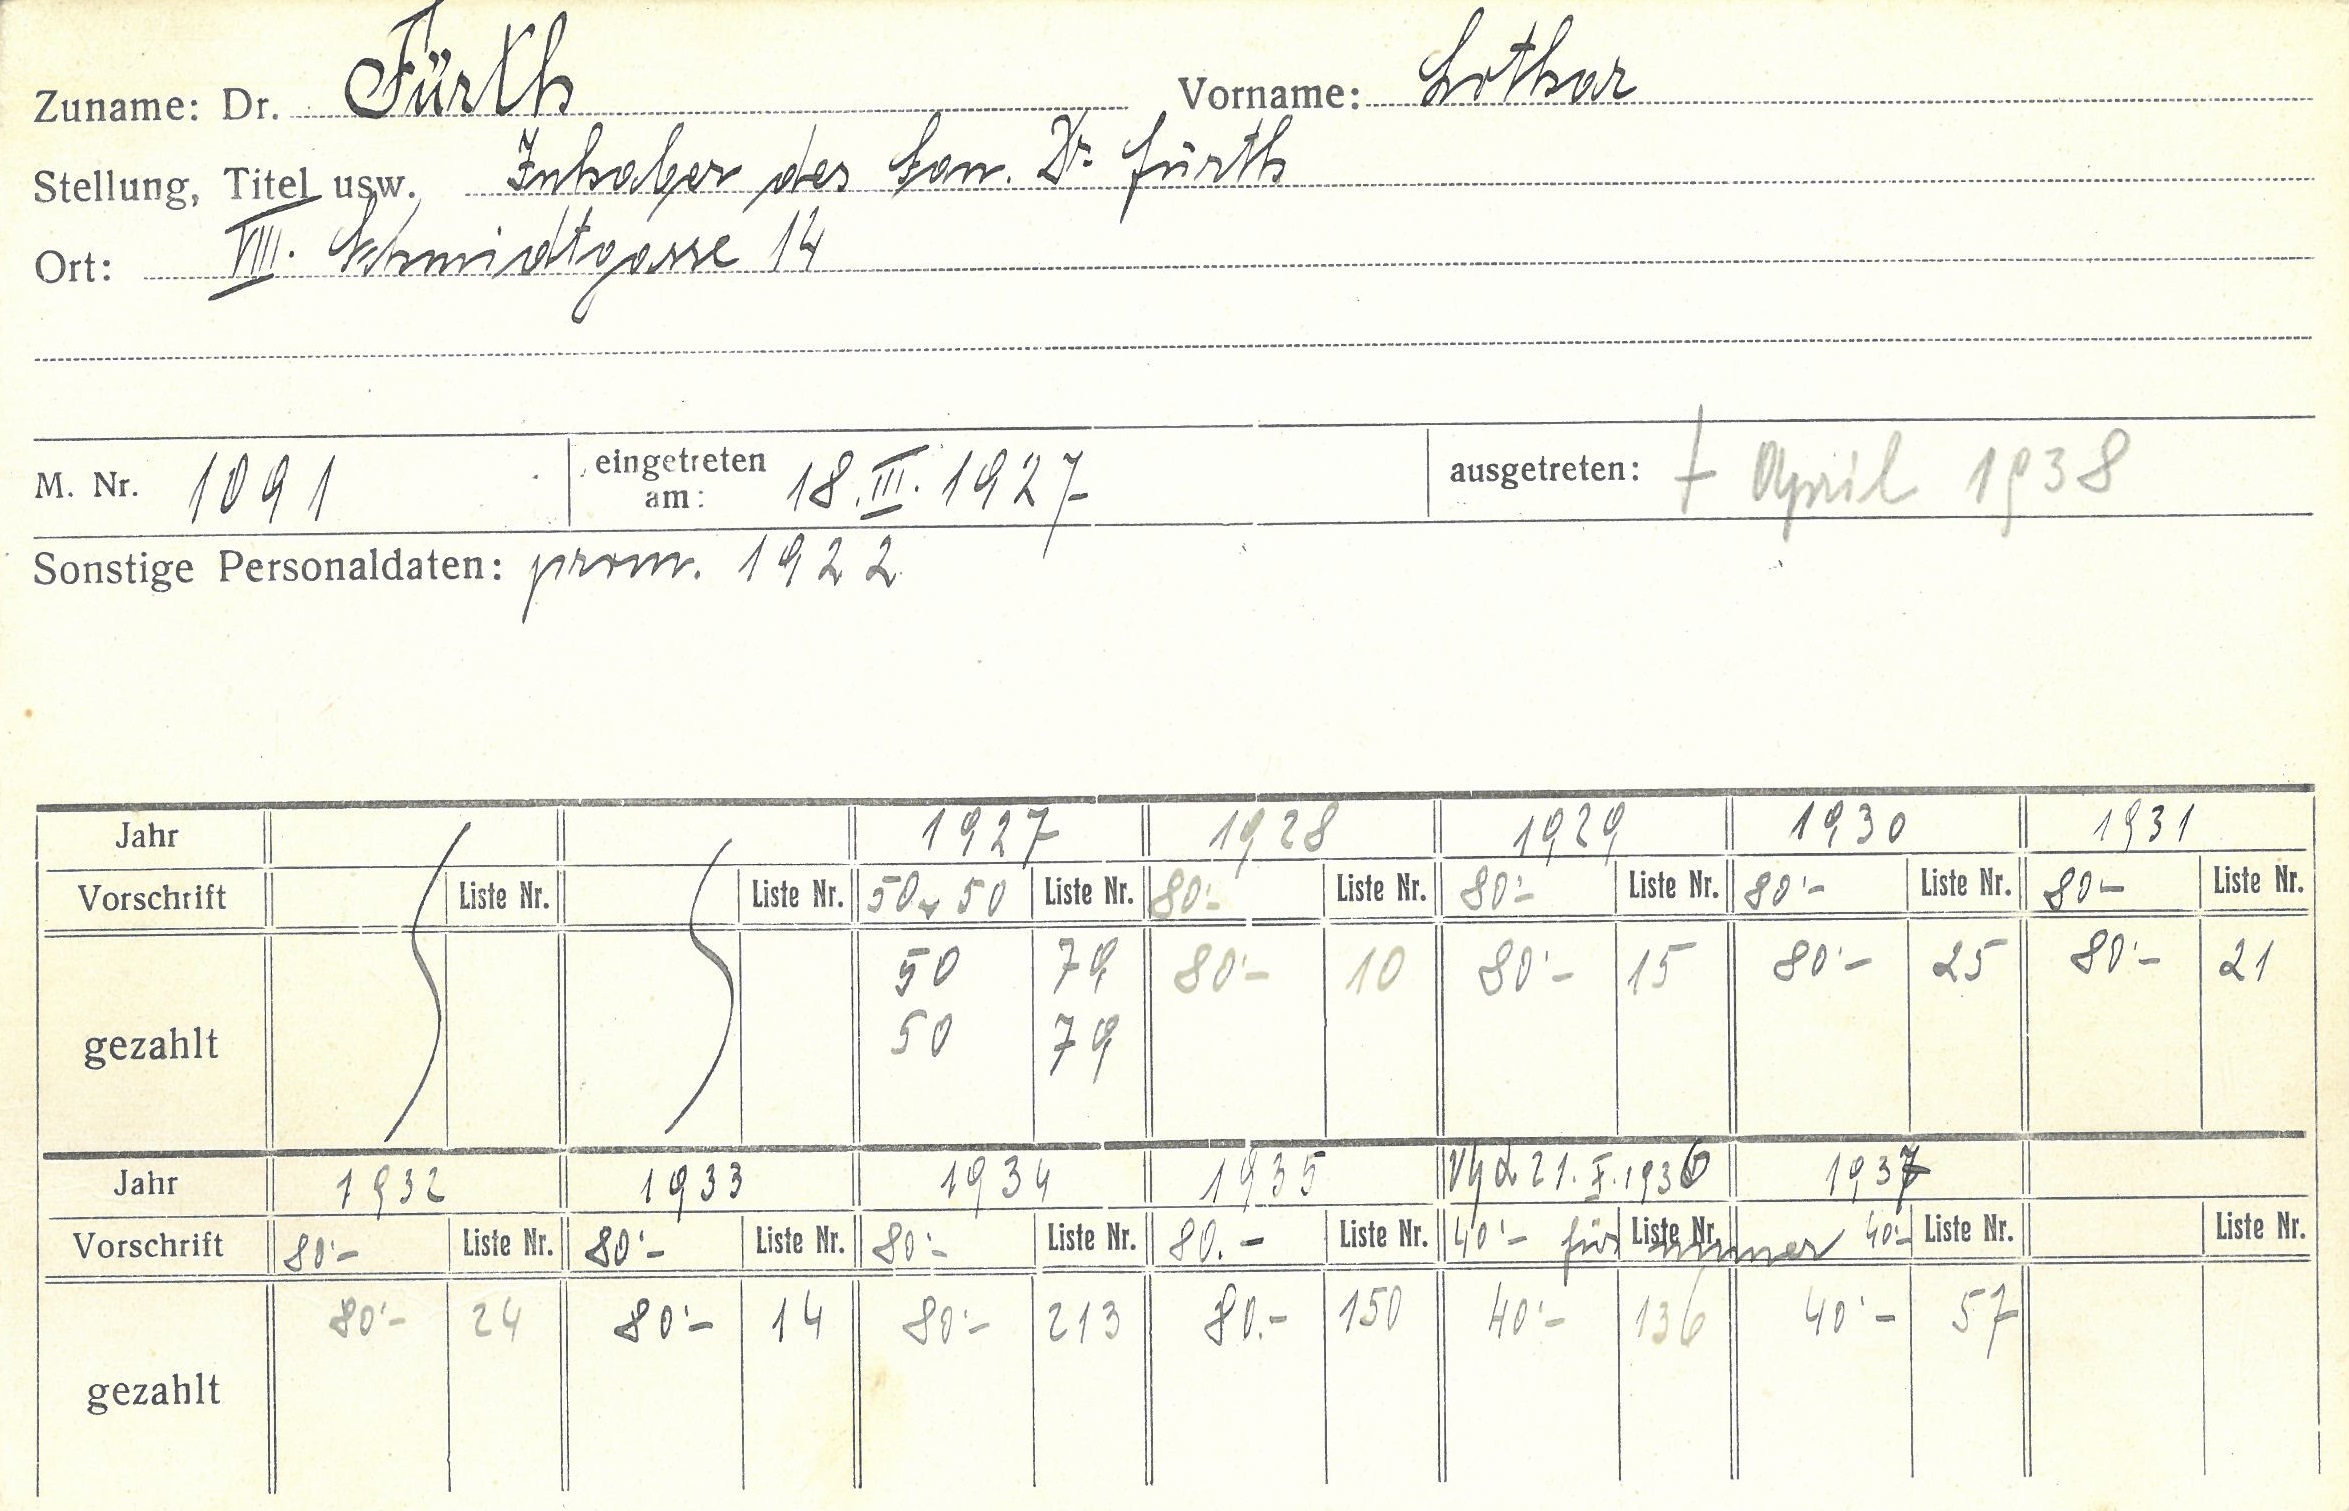 Zuname: Dr. Fürth Vorname: Lothar
Stellung, Titel usw. Inhaber des San. Dr. Fürth
Ort: VIII. Schmidtgasse 14
M. Nr. 1091 eingetreten am: 18.III.1927 ausgetreten: † April 1938
Sonstige Personaldaten: prom. 1922
Jahr 1927 1928 1929 1930 1931
Vorschrift Liste Nr. Liste Nr. 50 + 50 Liste Nr. 80'- Liste Nr. 80'- Liste Nr. 80'- Liste Nr. 80'- Liste Nr.
gezahlt 50 79 80'- 10 80'- 15 80'- 25 80'- 21
50 79
Jahr 1932 1933 1934 1935 21.X.1936 1937
Vorschrift 80'- Liste Nr. 80'- Liste Nr. 80'- Liste Nr. 80.- Liste Nr. 40'- für Liste Nr. immer 40'- Liste Nr. Liste Nr.
gezahlt 80'- 24 80'- 14 80'- 213 80.- 150 40'- 136 40'- 57